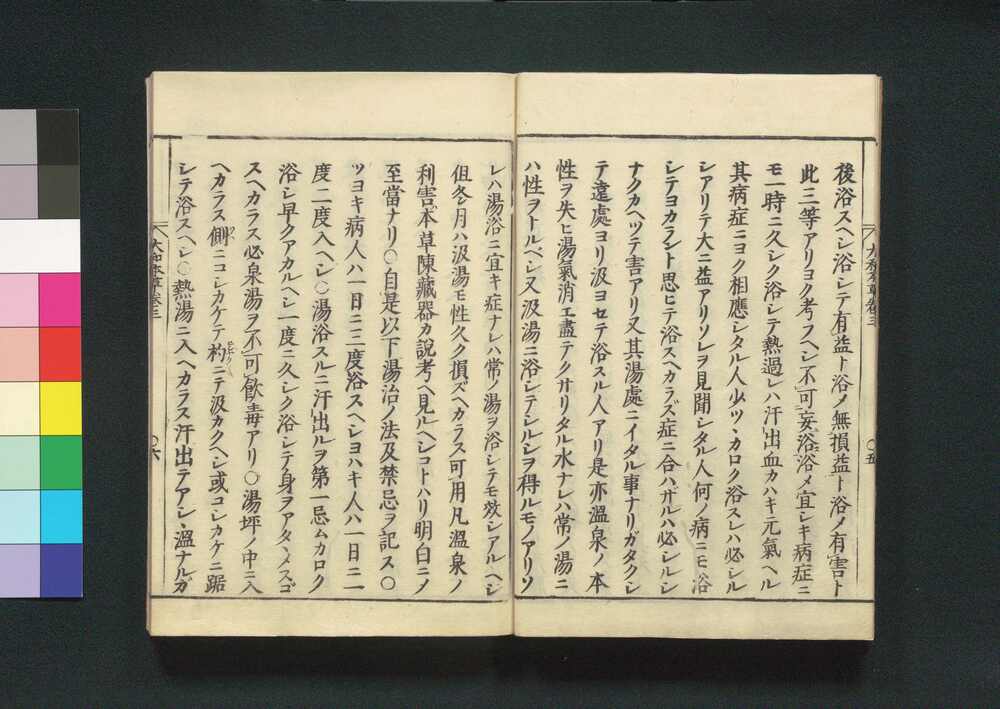 後浴スヘシ浴シテ有益ト浴メ無損益ト浴ノ有害ト
此三等アリヨク考フヘシ不可妄浴浴メ宜シキ病症ニ
モ一時ニ久シク浴シテ熱過レハ汗出血カハキ元氣ヘル
其病症ニヨク相應シタル人少ツヽカロク浴スレハ必シル
シアリテ大ニ益アリソレヲ見聞シタル人何ノ病ニモ浴
シテヨカラント思ヒテ浴スヘカラズ症ニ合ハザルハ必シルシ
ナクカヘツテ害アリ又其湯處ニイタル事ナリガタクシ
テ遠處ヨリ汲ヨセテ浴スル人アリ是亦溫泉ノ本
性ヲ失ヒ湯氣消エ盡テクサリタル水ナレハ常ノ湯ニ
ハ性ヲトルベシ又汲湯ニ浴シテシルシヲ得ルモノアリソ
大和本草卷三
〇五
レハ湯浴ニ宜キ症ナレハ常ノ湯ヲ浴シテモ效シアルヘシ
但冬月ハ汲湯モ性久ク損ズヘカラス可用凡溫泉ノ
利害本草陳藏器カ說考ヘ見ルヘシコトハリ明白ニノ
至當ナリ〇自是以下湯治ノ法及禁忌ヲ記ス〇
ツヨキ病人ハ一日ニ三度浴スヘシヨハキ人ハ一日ニ一
度二度入ヘシ〇湯浴スルニ汗出ルヲ第一忌ムカロク
浴シ早クアカルヘシ一度ニ久シク浴シテ身ヲアタヽメスゴ
スヘカラス必泉湯ヲ不可飲毒アリ〇湯坪ノ中ニ入
ヘカラス側ニコシカケテ杓ニテ汲カクヘシ或コシカケニ踞
シテ浴スヘシ〇熱湯ニ入ヘカラス汗出テアシヽ溫ナルガ
大和本草卷三
〇六